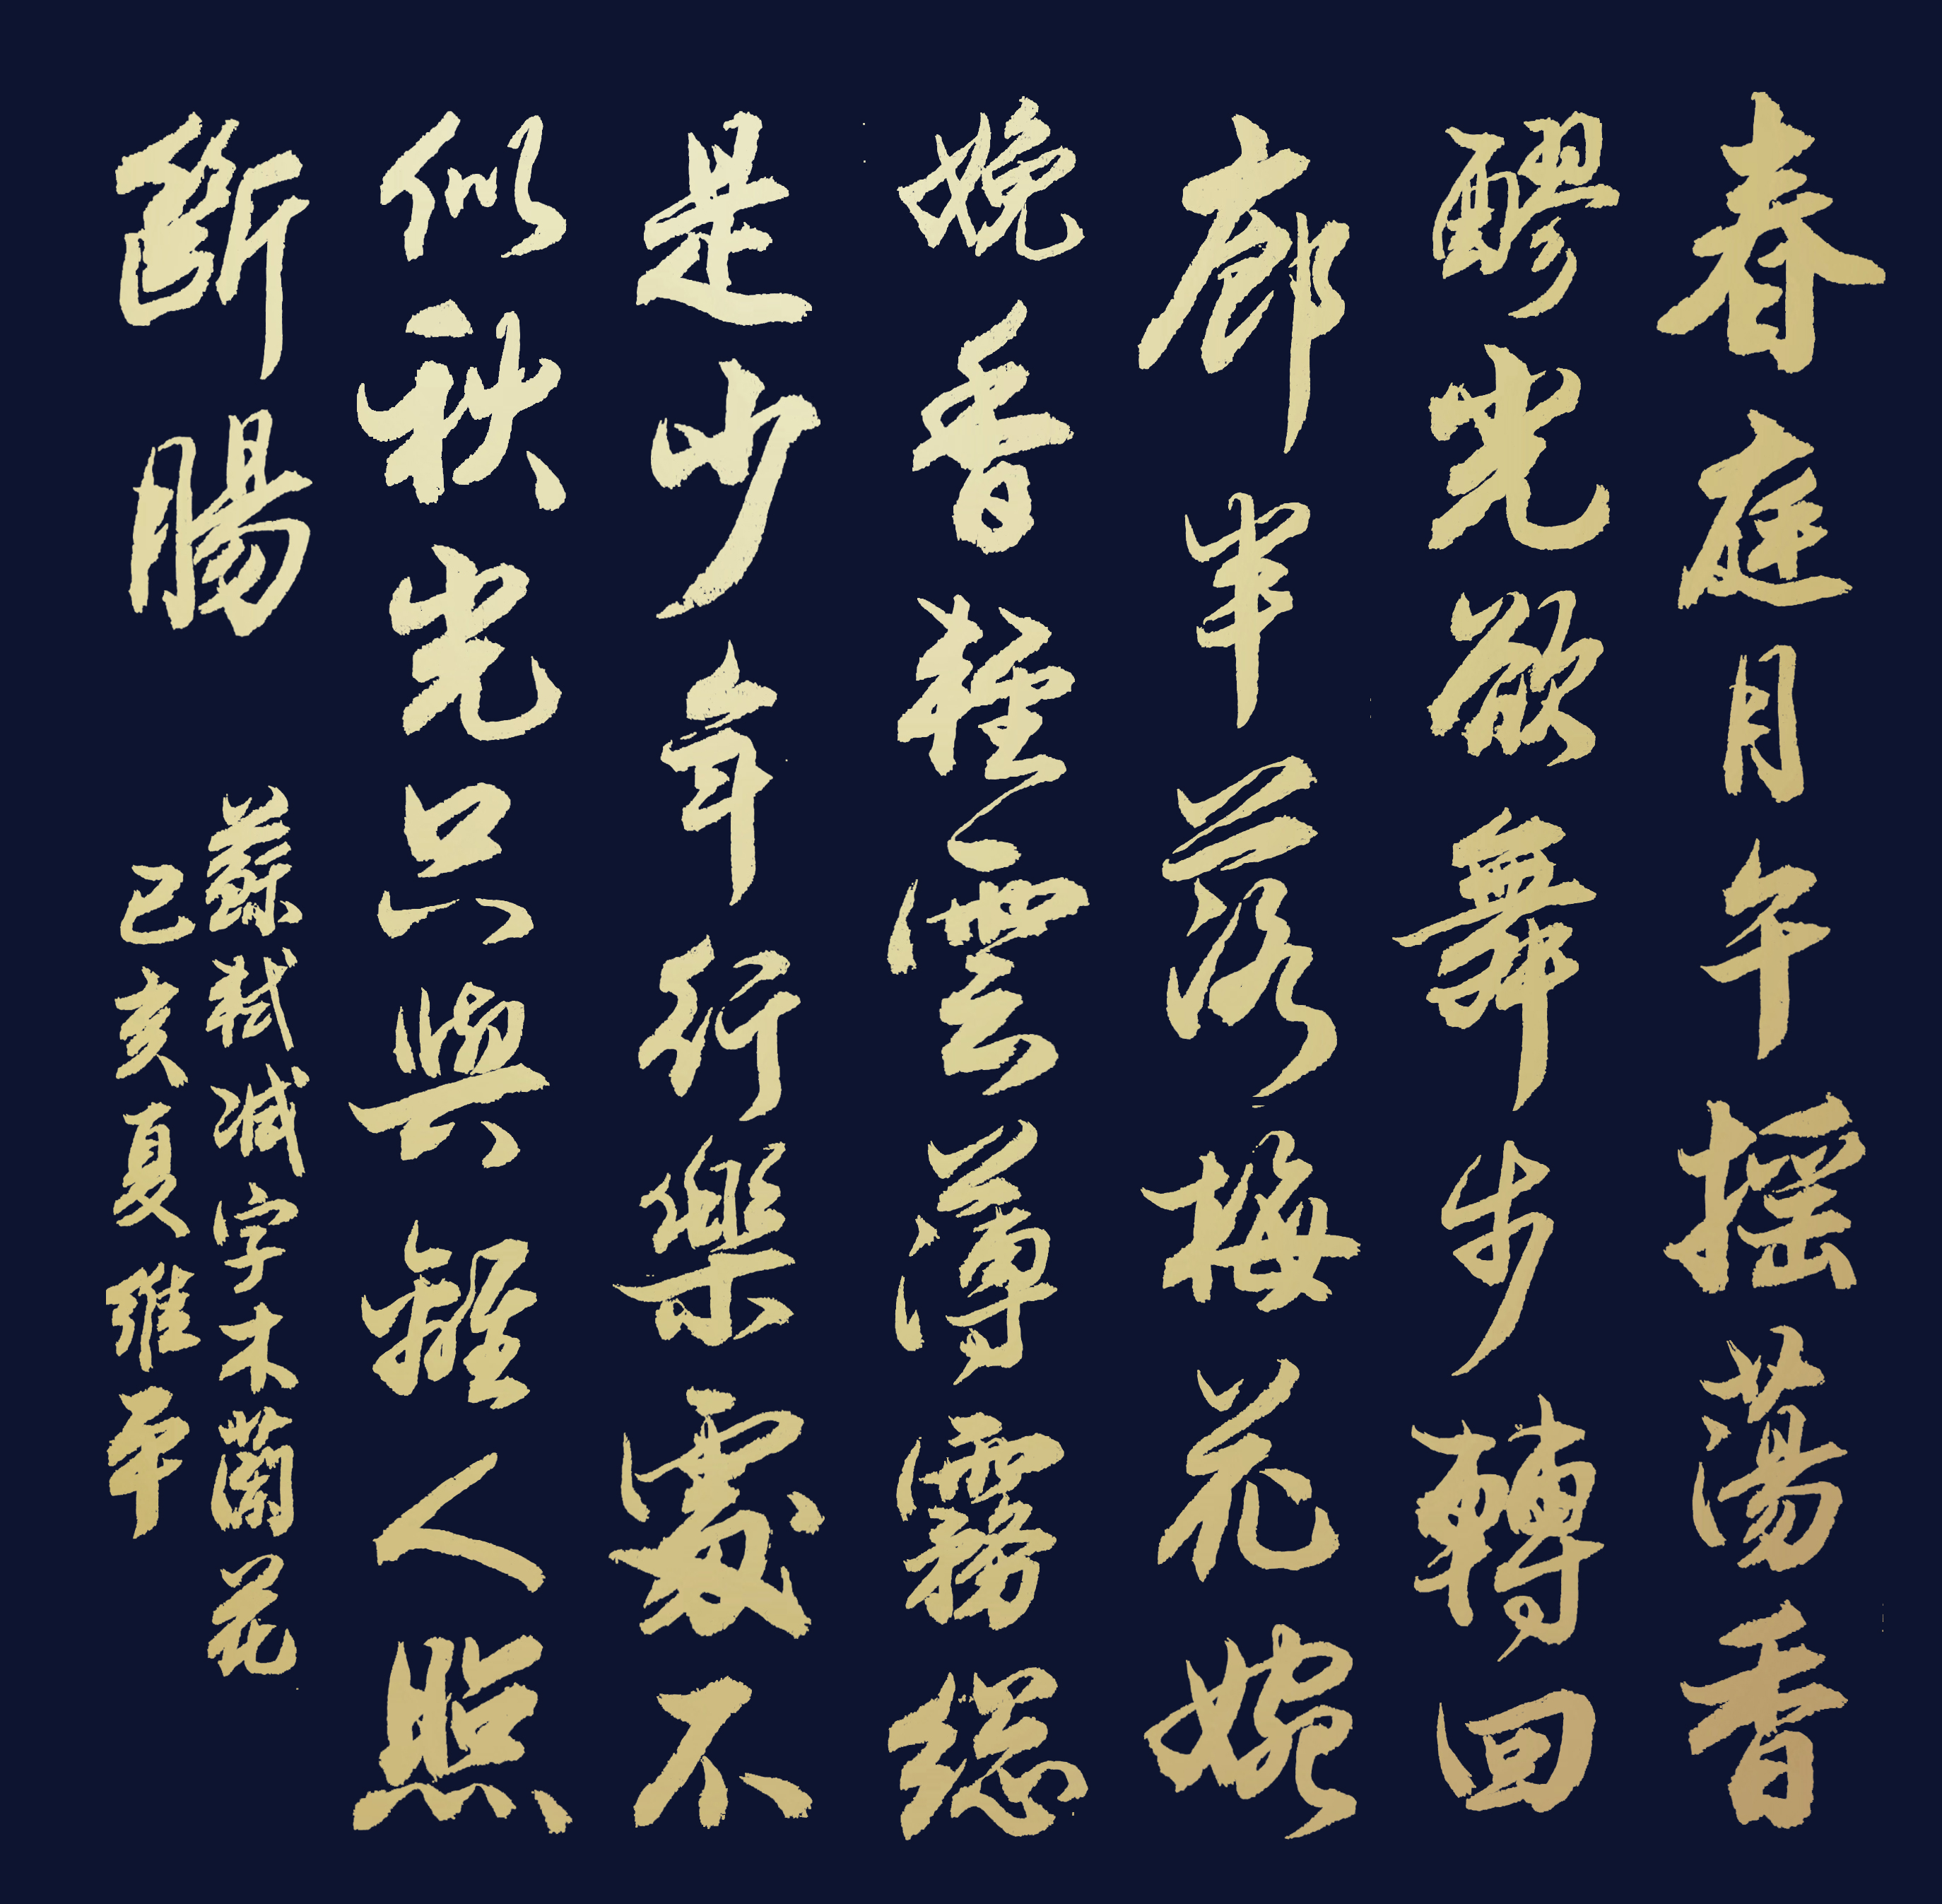 春庭月午搖蕩香
醪光欲舞步轉回
廊半落梅花婉
娩香輕雲薄霧總
是少年行樂處不
似秋光只與離人照
斷腸
蘇軾減字木蘭花
己亥夏維平